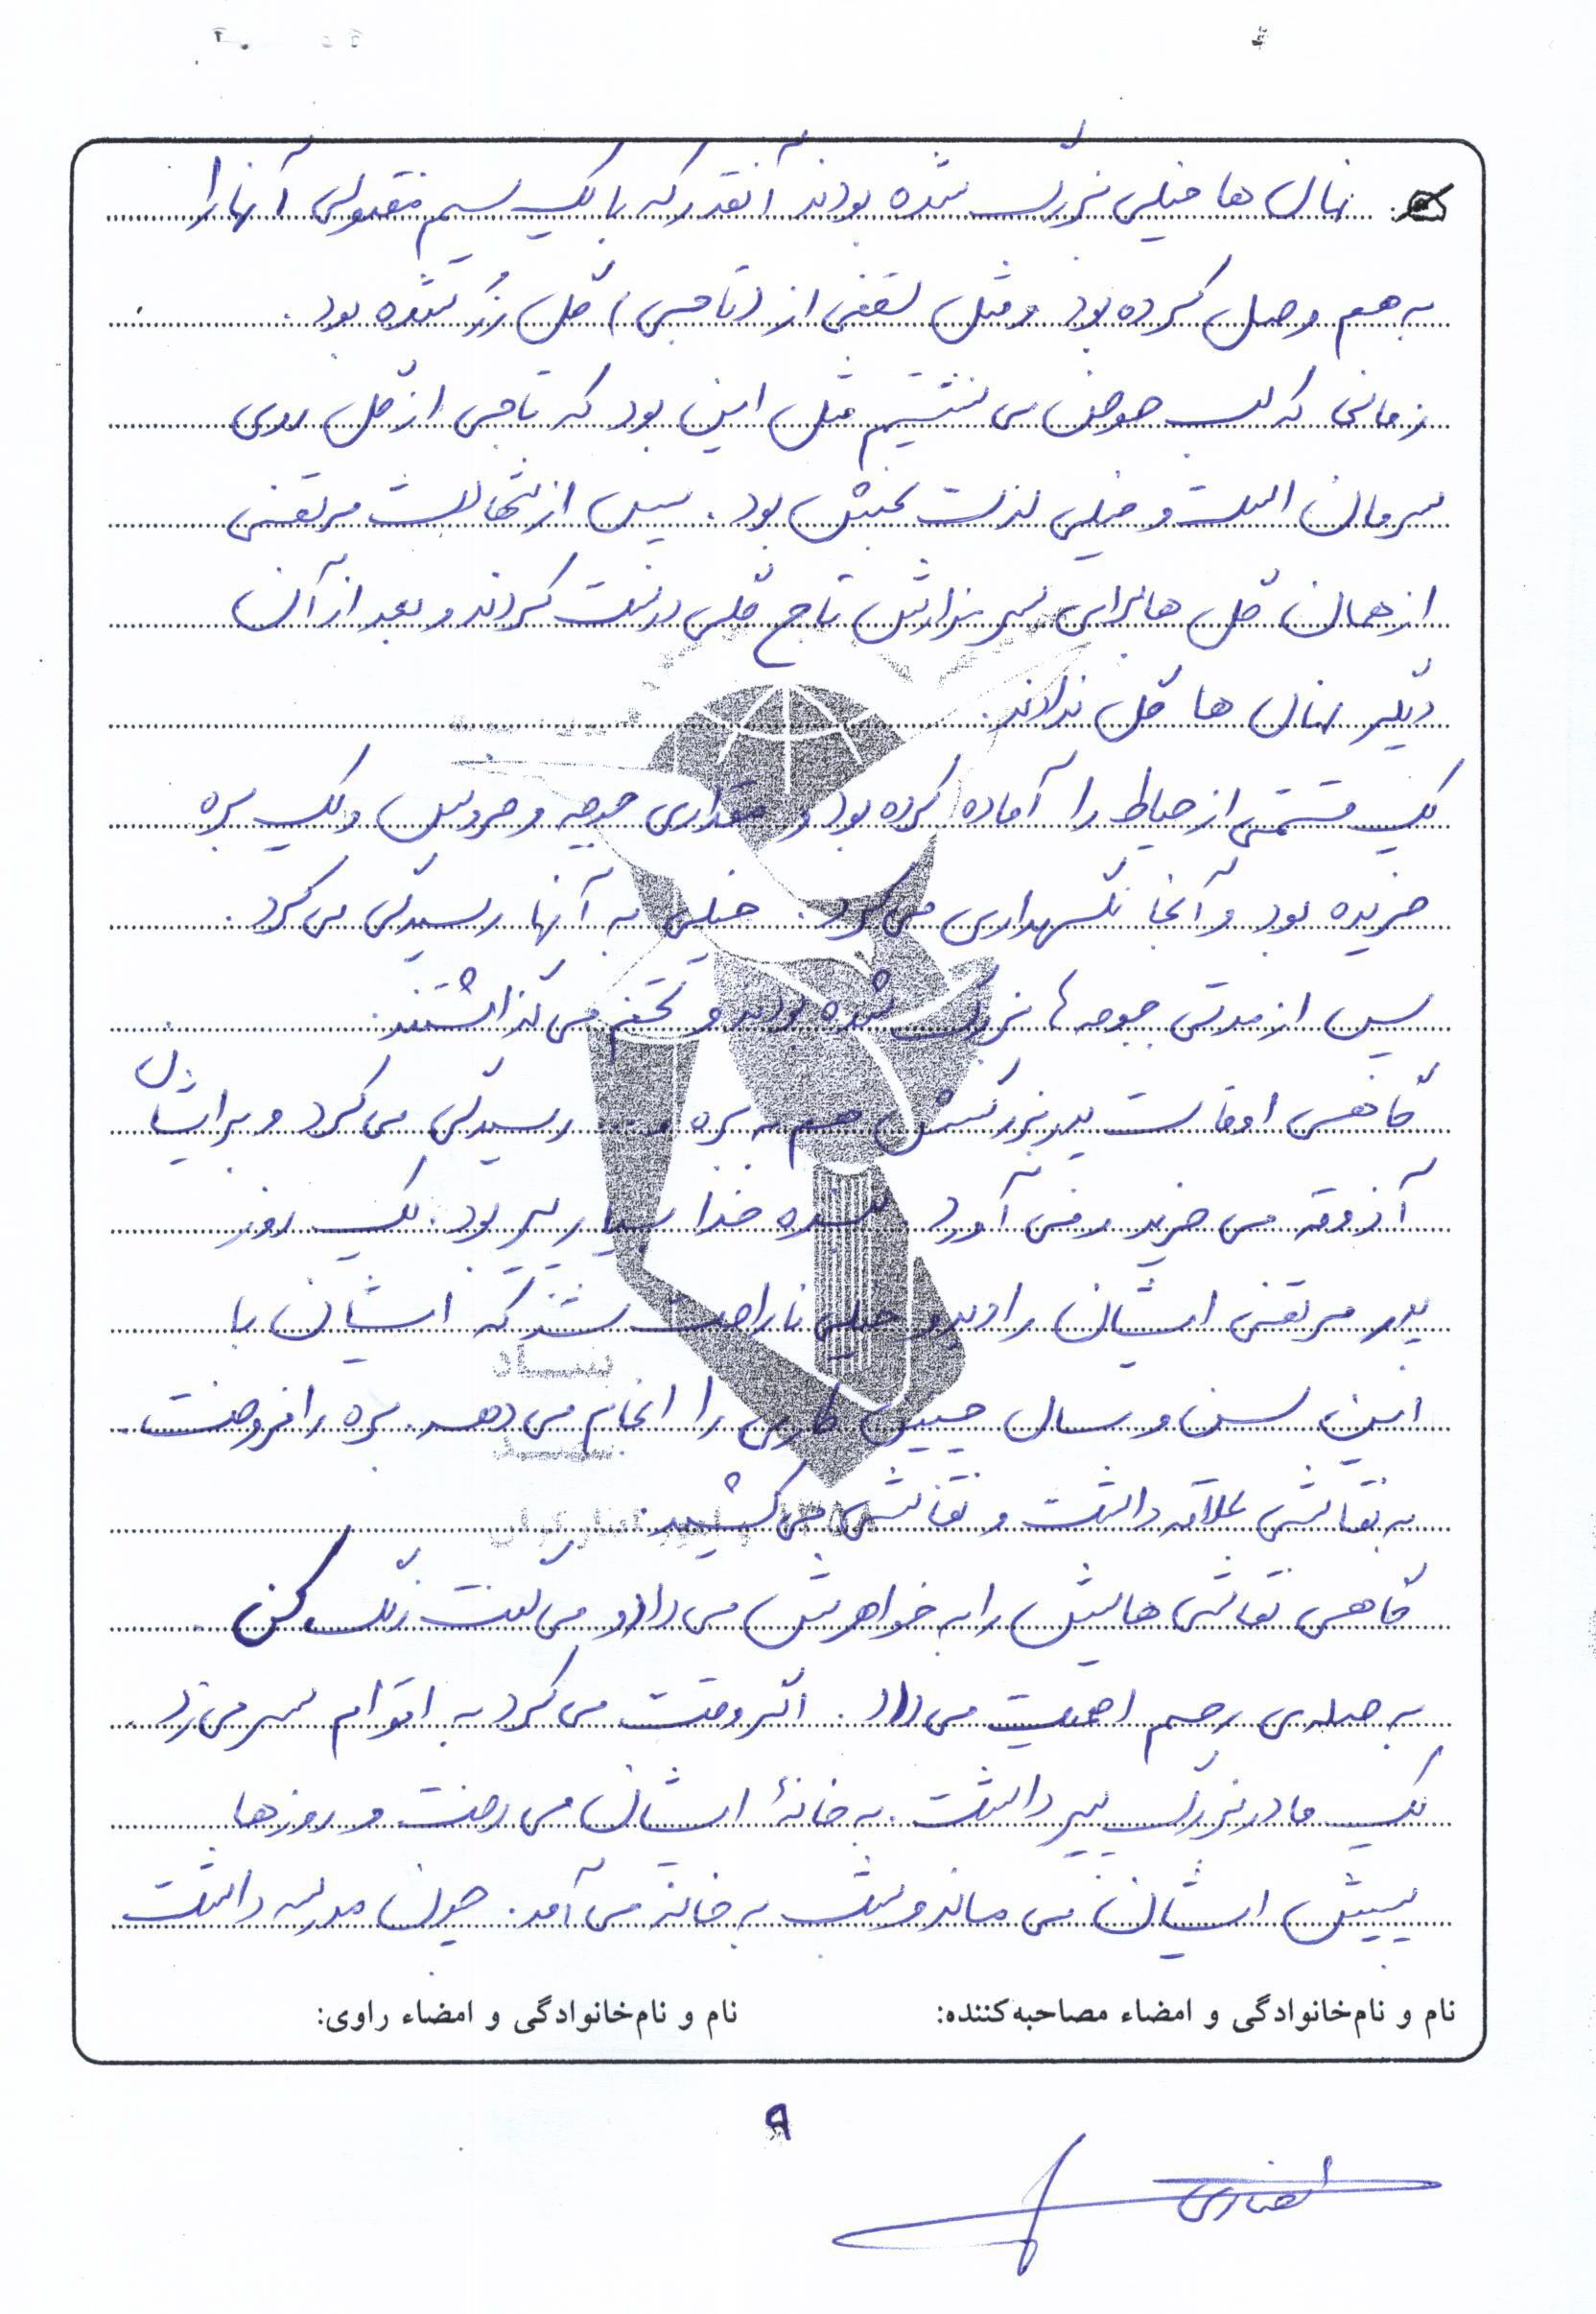 نهال ها خیلی بزرگ شده بودند آنقدر که با یک سیم مفتولی آنها را
به هم وصل کرده بود و مثل سقفی از (تاجی) گل رز شده بود.
زمانی که لب حوض می نشستیم مثل این بود که تاجی از گل روی
سرمان است و خیلی لذت بخش بود. پس از شهادت مرتضی
از همان گل ها برای سر مزارش تاج گلی درست کردند و بعد از آن
دیگر نهال ها گل ندادند.
یک قسمتی از حیاط را آماده کرده بود و مقداری جوجه و خروس و یک بره
خریده بود و آنجا نگهداری می کرد. خیلی به آنها رسیدگی می کرد.
پس از مدتی جوجه ها بزرگ شده بودند و تخم می گذاشتند.
گاهی اوقات پدربزرگش هم به بره و ... رسیدگی می کرد و برایشان
آذوقه می خرید و می آورد بنده خدا بسیار پیر بود. یک روز
پدر مرتضی ایشان را دید و خیلی ناراحت شد که ایشان با
این سن و سال چنین کاری را انجام می دهد. بره را فروخت.
به نقاشی علاقه داشت و نقاشی می کشید.
گاهی نقاشی هایش را به خواهرش می داد و می گفت رنگ کن
به صله ی رحم اهمیت می داد. اگر وقت می کرد به اقوام سر می زد.
یک مادربزرگ پیر داشت. به خانهٔ ایشان می رفت و روزها
پیش ایشان می ماند و شب به خانه می آمد. چون مدرسه داشت
نام و نام‌خانوادگی و امضاء مصاحبه‌کننده: نام و نام‌خانوادگی و امضاء راوی:
۹